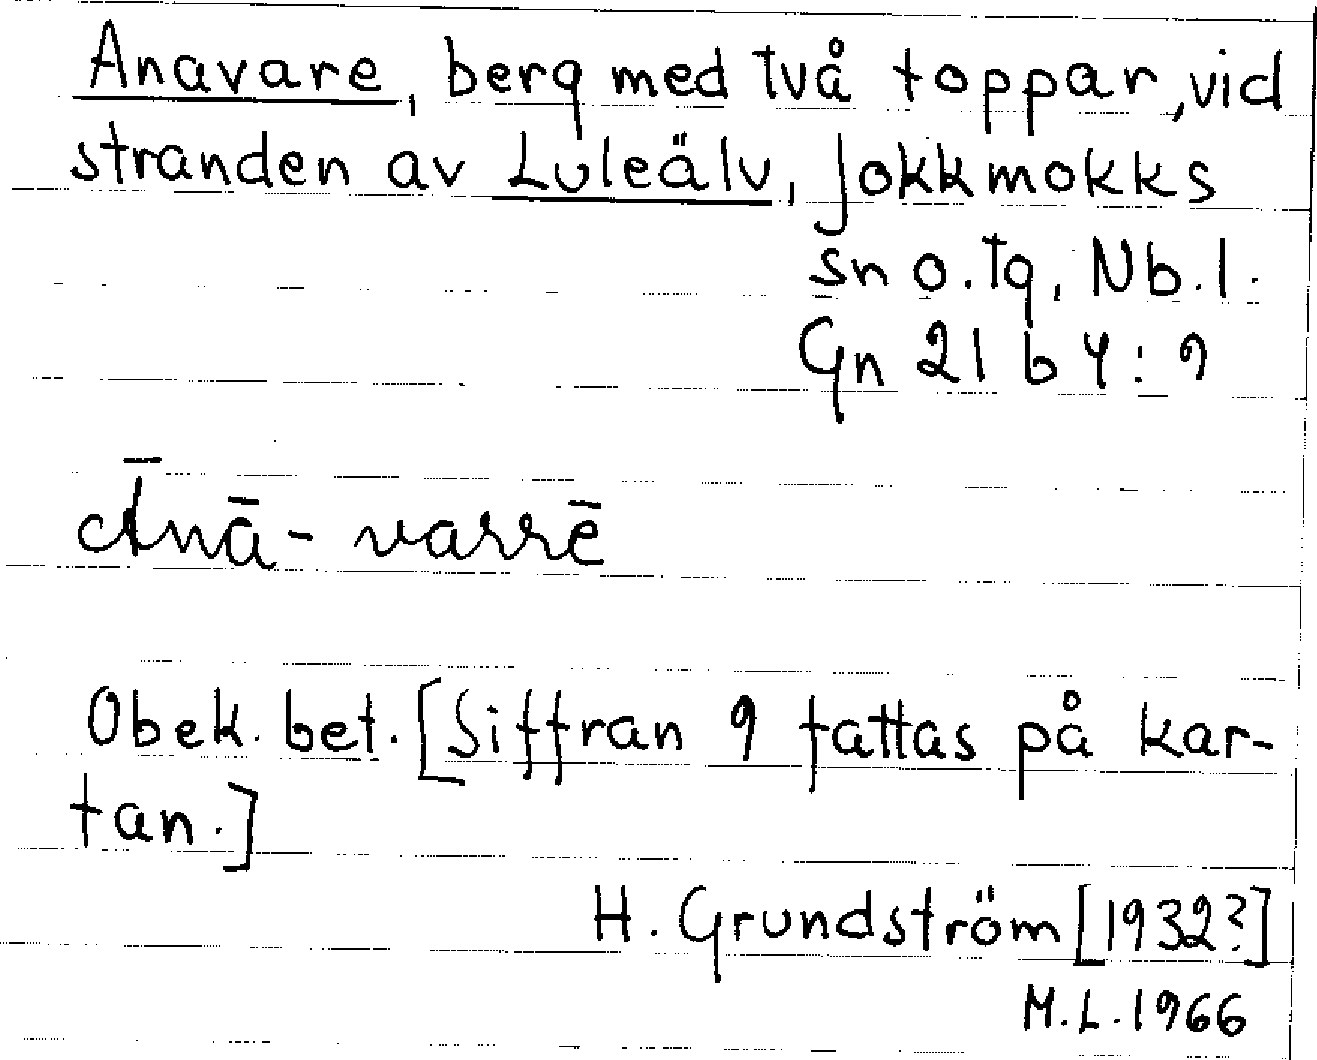 Anavare, berg med två toppar, vid
stranden av Luleälv, Jokkmokks
sn o. tg, Nb. l.
Gn 21 b 4 : 9
Ānā-varrē
Obek. bet. [Siffran 9 fattas på kar-
tan.]
H. Grundström [1932?]
M.L. 1966